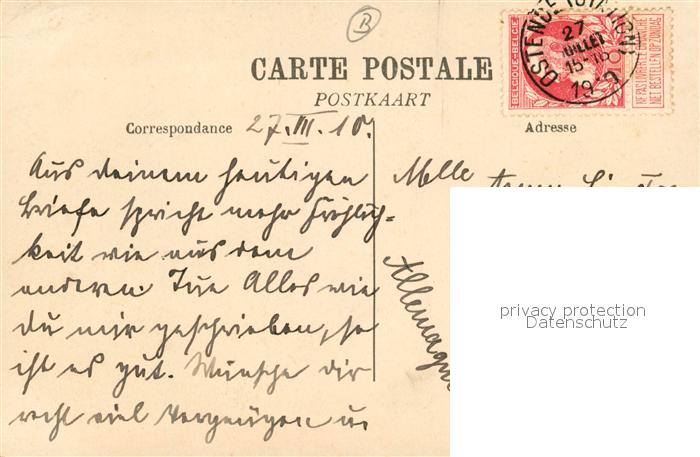 B
OSTENDE
27
JUILLET
15-16
BELGIQUE-BELGIË
NE PAS LIVRER LE DIMANCHE
NIET BESTELLEN OP ZONDAG
CARTE POSTALE
POSTKAART
Correspondance 27. III. 10.
Adresse
Aus deinem heutigen
Briefe spricht mehr Fröhlich=
keit wie aus dem
anderen. Tue Alles wie
du mir geschrieben, so
ist es gut. Wünsche dir
recht viel Vergnügen u.
Melle
Allemagne
privacy protection
Datenschutz